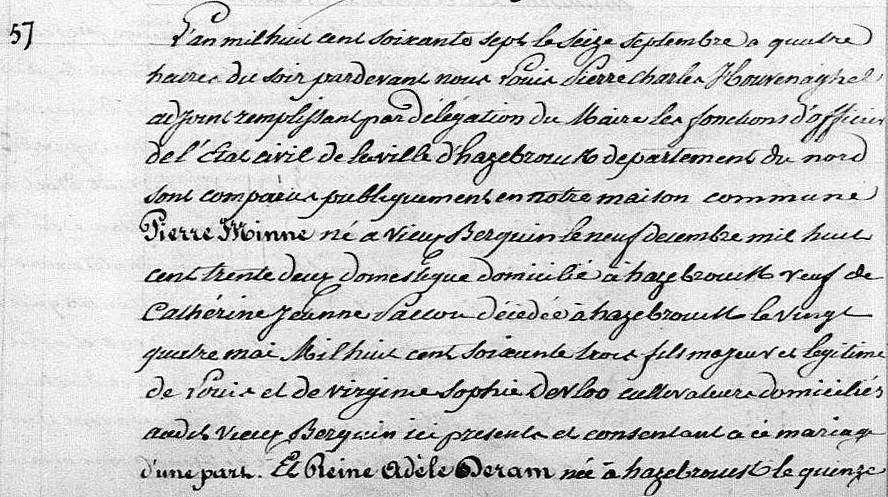 57
L'an mil huit cent soixante sept le seize septembre a quatre
heures du soir pardevant nous Louis Pierre Charles Houvenaghel
adjoint remplissant par délégation du Maire les fonctions d'officier
de l'Etat civil de la ville d'hazebrouck departement du nord
sont comparus publiquement en notre maison commune
Pierre Minne né a Vieux Berquin le neuf decembre mil huit
cent trente deux domestique domicilié à hazebrouck veuf de
Cathérine Jeanne décédée à hazebrouck le vingt
quatre mai Mil huit cent soixante trois fils majeur et légitime
de Louis et de virginie Sophie Devloo cultivateurs domiciliés
audit Vieux Berquin ici presents et consentant a ce mariage
d'une part. Et Reine Adèle Deram née à hazebrouck le quinze